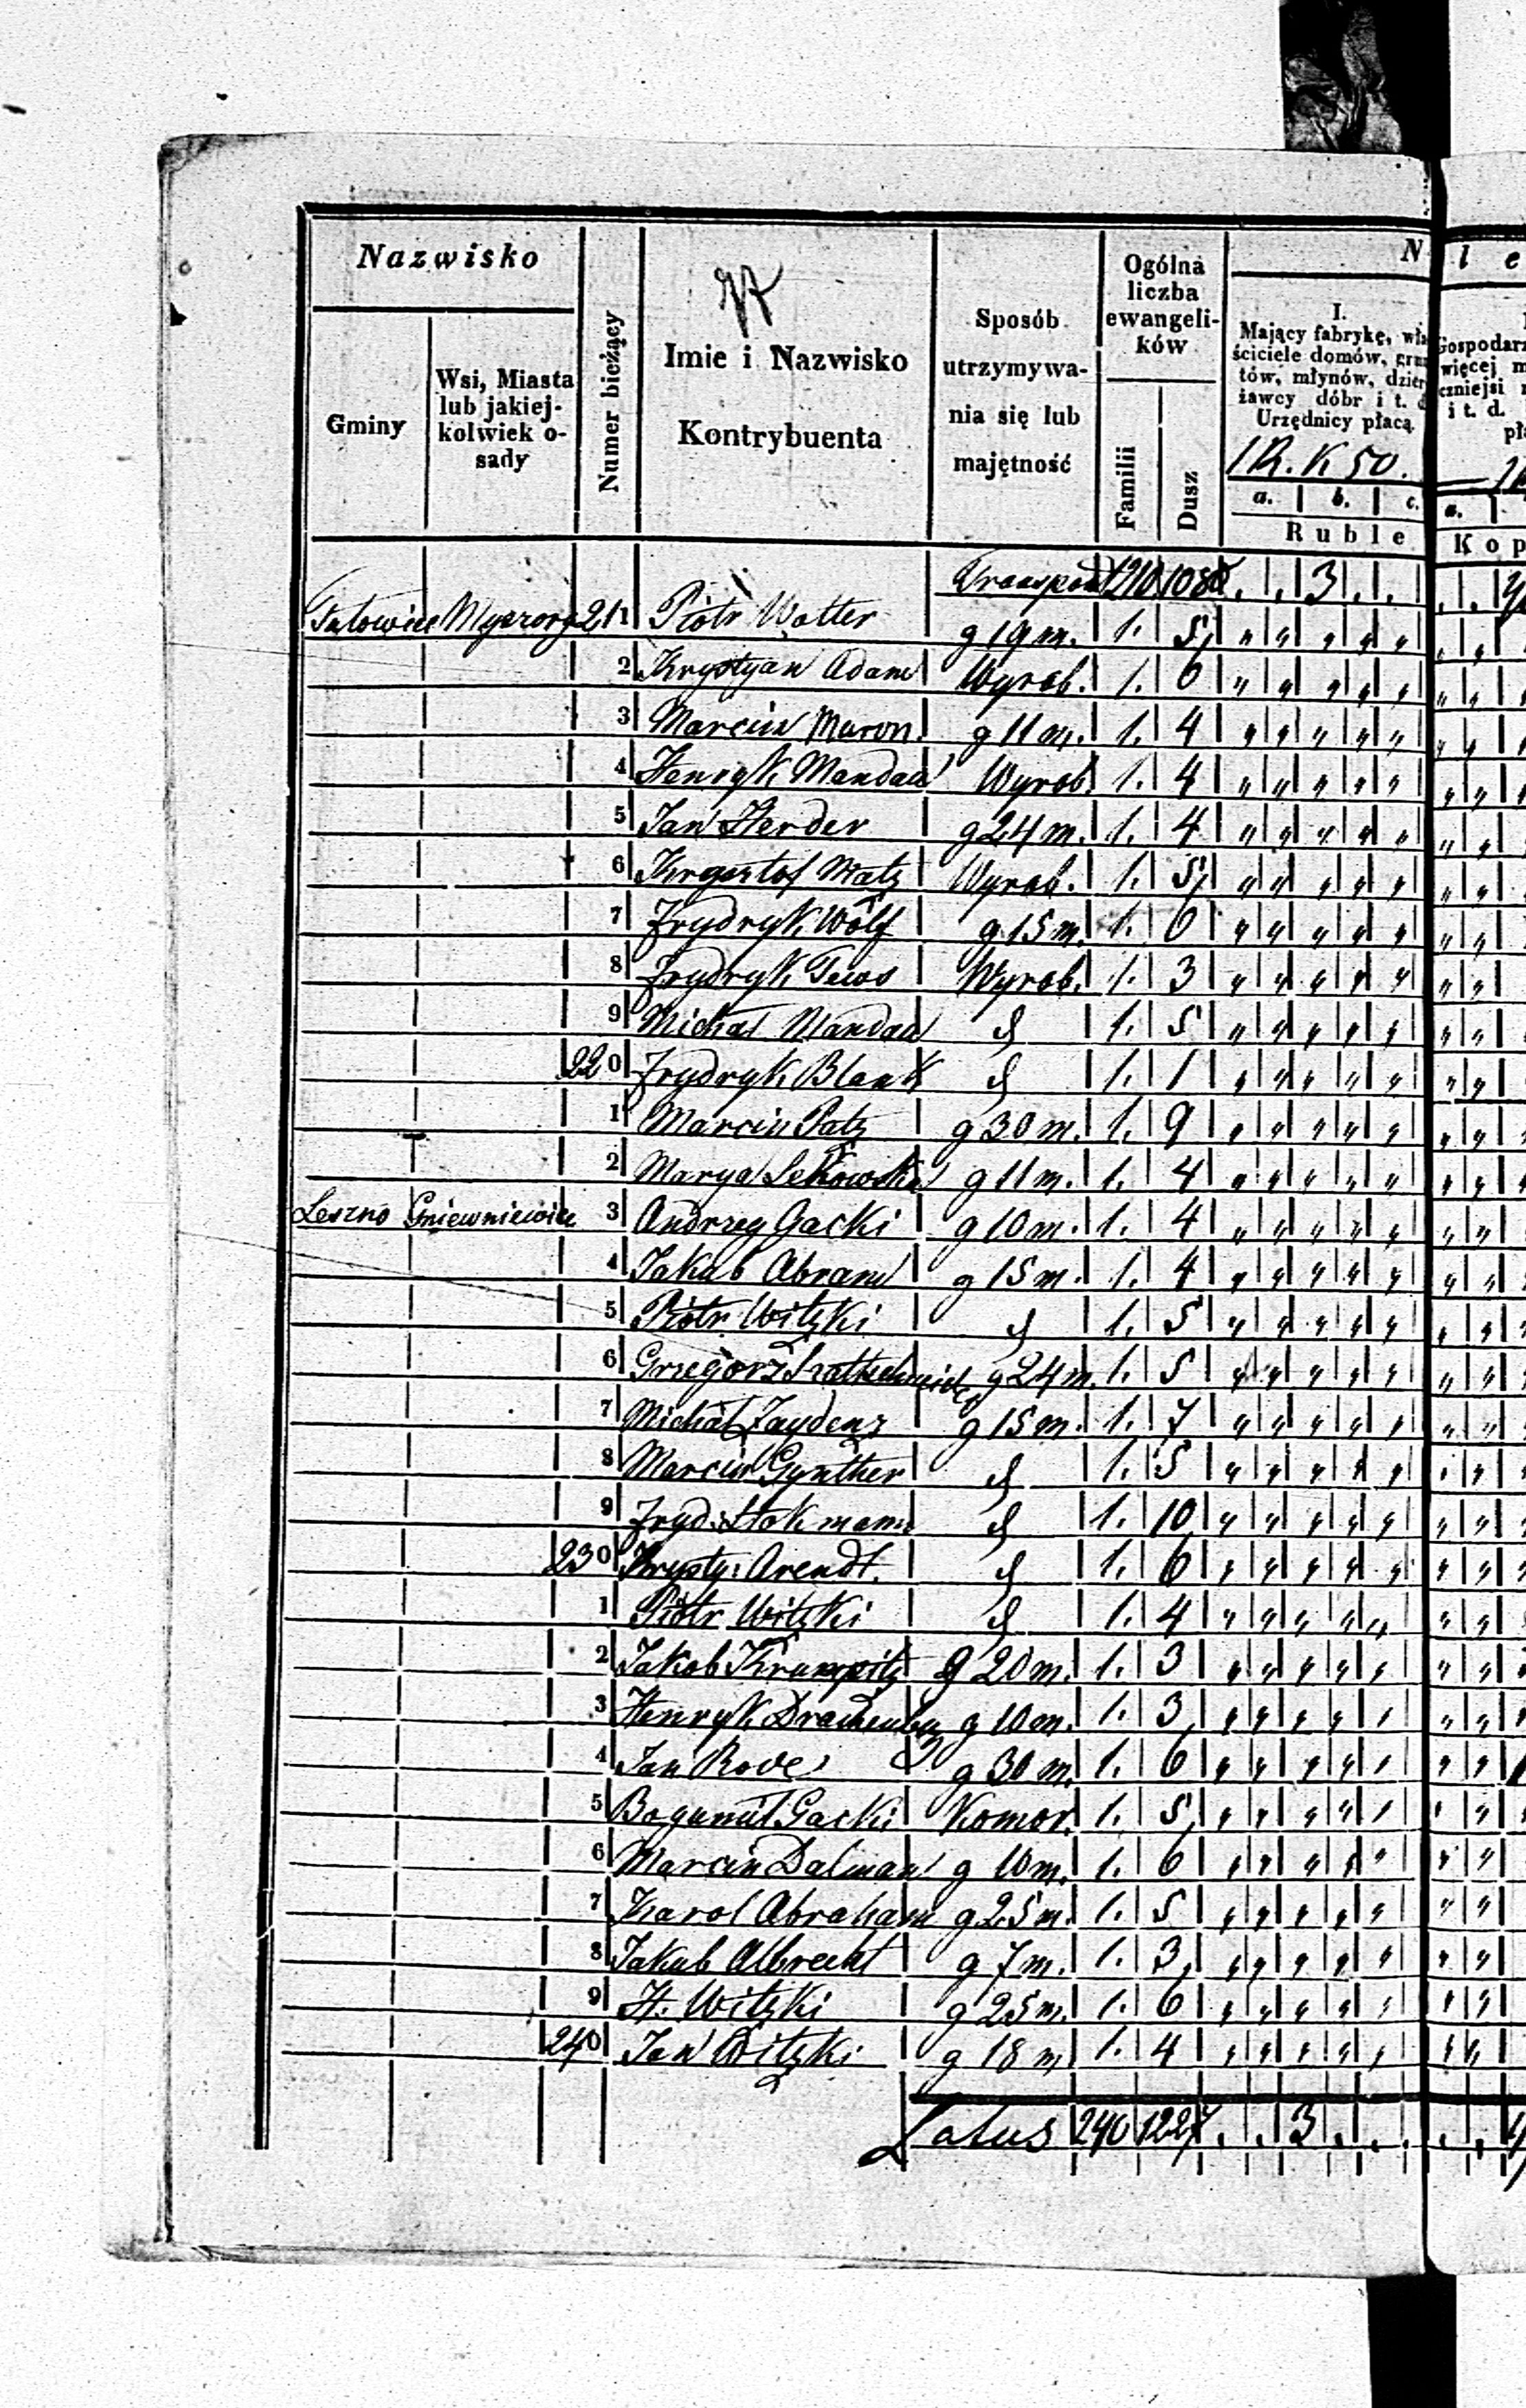 Nazwisko
Gminy
Wsi, Miasta lub jakiej-kolwiek o-sady
Numer bieżący
Imie i Nazwisko
Kontrybuenta
Sposób utrzymywa-nia się lub majętność
Ogólna liczba ewangeli-ków
Familii
Dusz
N
I.
Mający fabrykę, wła
ściciele domów, grun
tów, młynów, dzier
żawcy dóbr i t. d
Urzędnicy płacą.
1 R. K 50.
a. b. c.
Ruble
l e
Gospodarz
więcej m
czniejsi
i t. d.
a.
Kop
Transport 210 1088 . . 3 . . .
211 Piotr Wolter g 19 m. 1. 5 " " " " "
2 Krystyan Adam Wyrob. 1. 6 " " " " "
3 Marcin Maron g 11 m. 1. 4 " " " " "
4 Henryk Mandau Wyrob. 1. 4 " " " " "
5 Jan Herder g 24 m. 1. 4 " " " " "
6 Krysztof Matz Wyrob. 1. 5 " " " " "
7 Frydryk Wolf g 15 m. 1. 6 " " " " "
8 Frydryk Tews Wyrob. 1. 3 " " " " "
9 Michał Mandau d 1. 5 " " " " "
220 Frydryk Blank d 1. 1 " " " " "
1 Marcin Patz g 30 m. 1. 9 " " " " "
2 Marya Sekowska g 11 m. 1. 4 " " " " "
Leszno Gniewniewice 3 Andrzey Gacki g 10 m. 1. 4 " " " " "
4 Jakub Abram g 15 m. 1. 4 " " " " "
5 Piotr Witzki d 1. 5 " " " " "
6 Grzegorz g 24 m. 1. 5 " " " " "
7 Michał g 15 m. 1. 7 " " " " "
8 Marcin Gynther d 1. 5 " " " " "
9 Fryd. Stokmann d 1. 10 " " " " "
230 Krysty. Arendt. d 1. 6 " " " " "
1 Piotr Witzki d 1. 4 " " " " "
2 Jakob Krampitz g 20 m. 1. 3 " " " " "
3 Henryk g 10 m. 1. 3 " " " " "
4 Jan Rode g 30 m. 1. 6 " " " " "
5 Bogumił Gacki Komor. 1. 5 " " " " "
6 Marcin Dalman g 10 m. 1. 6 " " " " "
7 Karol Abraham g 25 m. 1. 5 " " " " "
8 Jakub Albrecht g 7 m. 1. 3 " " " " "
9 H. Witzki g 25 m. 1. 6 " " " " "
240 Jan Witzki g 18 m 1. 4 " " " " "
Latus 240 1227 . . 3 . . .